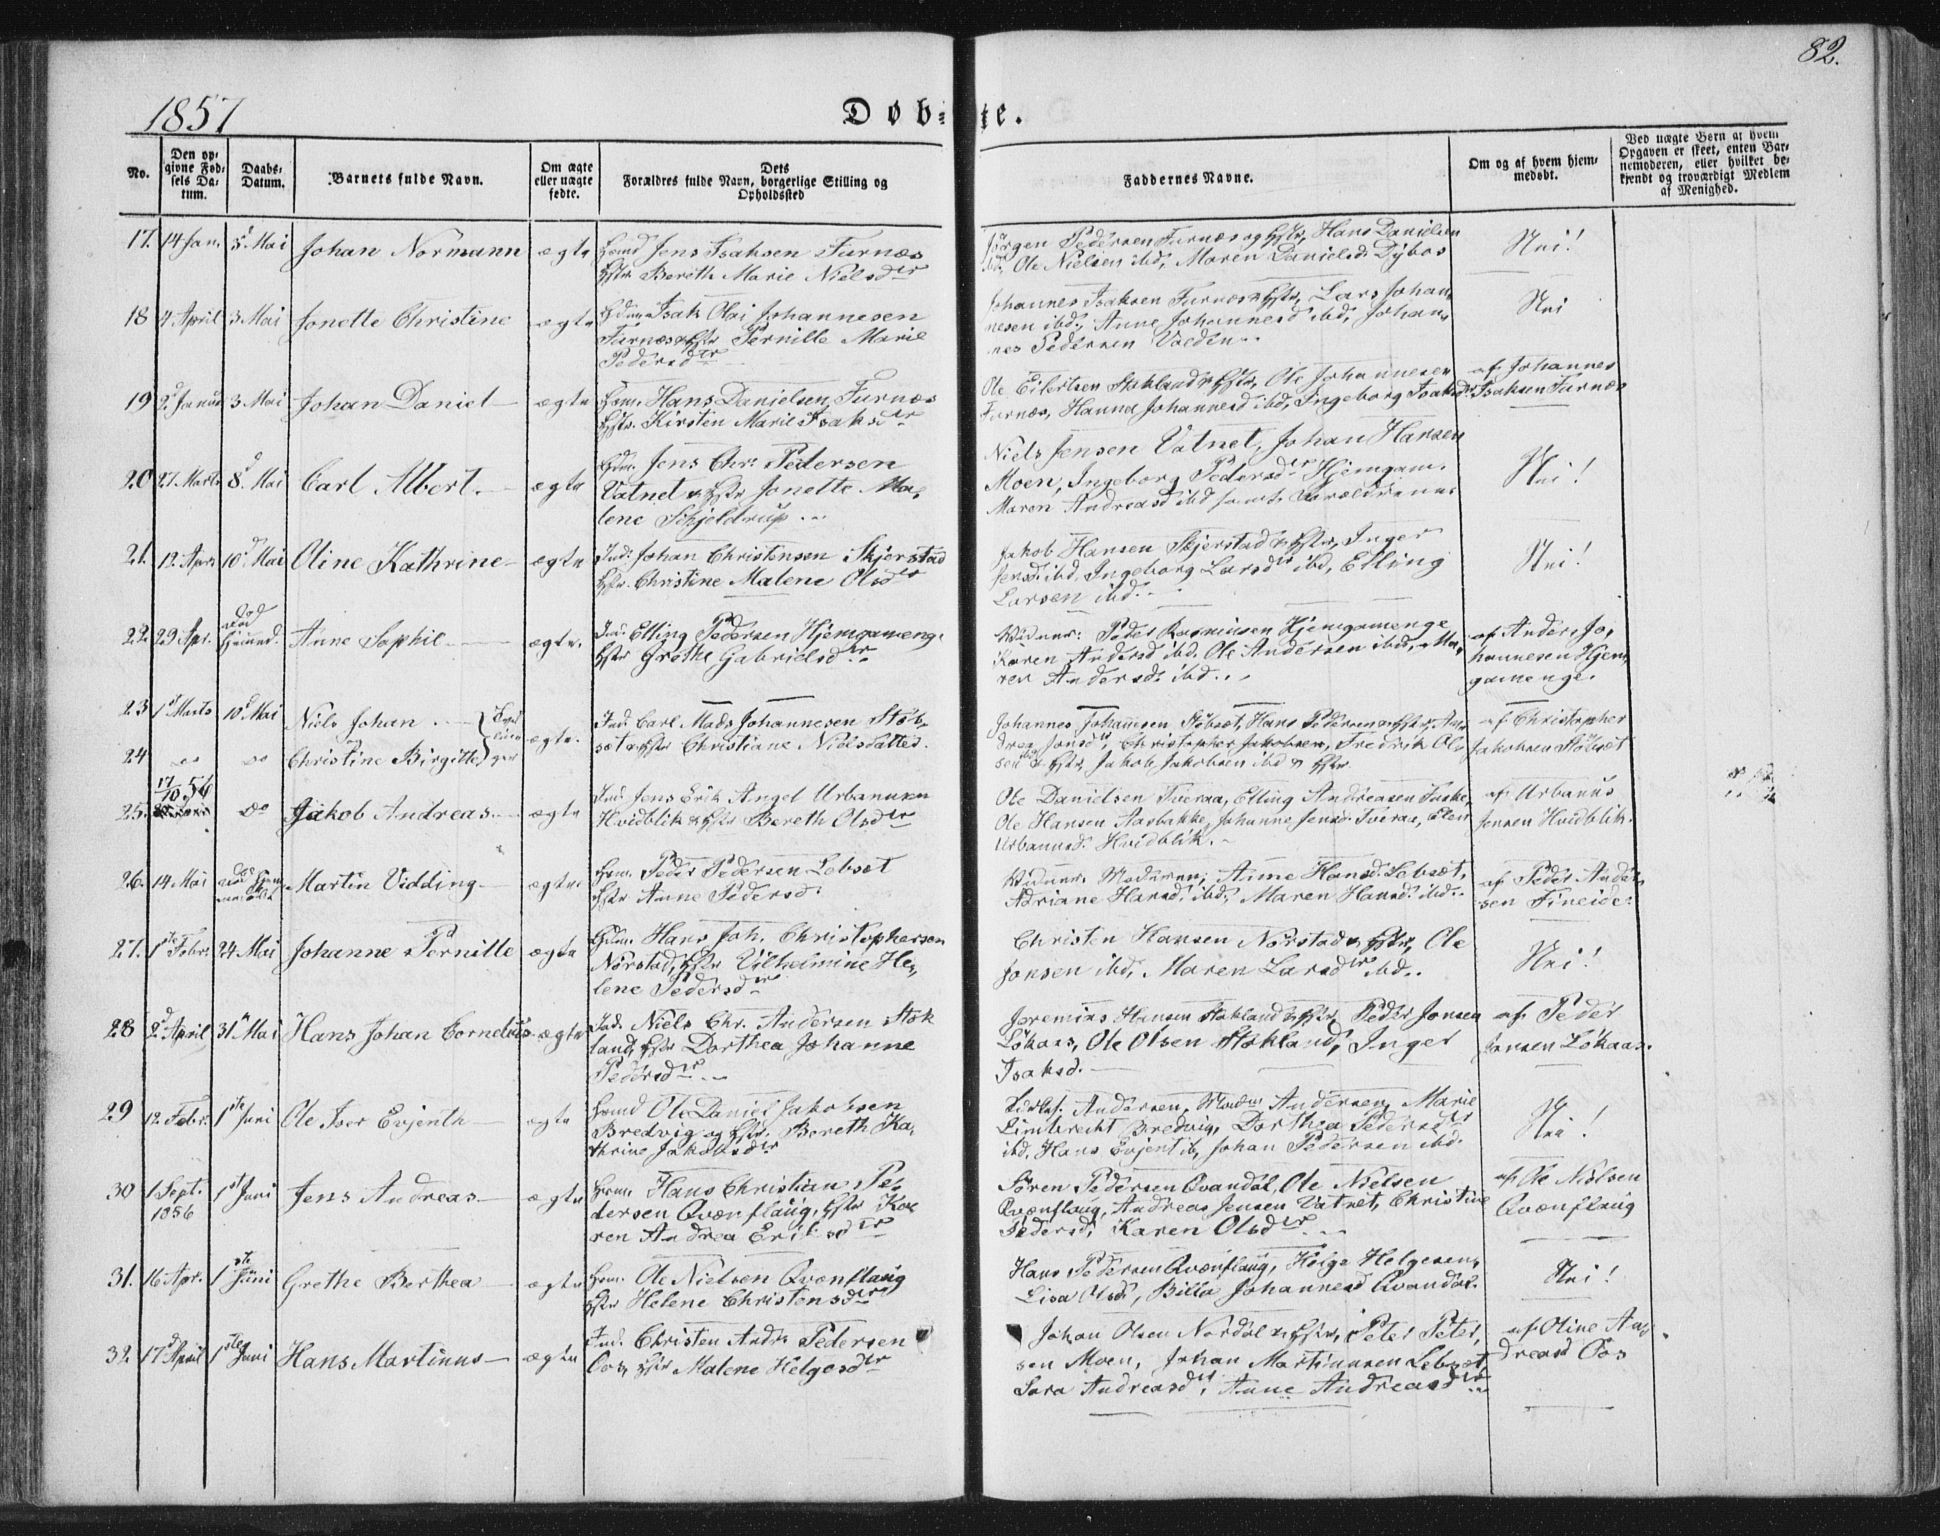 82.
1857
Døb= te.
No.
Den opgivne Fødsels Datum.
Daabs-Datum.
Barnets fulde Navn.
Om ægte eller uægte fødte.
Dets Forældres fulde Navn, borgerlige Stilling og Opholdssted
Faddernes Navne.
Om og af hvem hjemmedøbt.
Ved uægte Børn at hvem Opgaven er skeet, enten Barnemoderen, eller hvilket bekjendt og troværdigt Medlem af Menighed.
17. 14 Jan. 3d Mai Johan Normann ægte
Jens Isaksen Furnæs
Berith Marie Nielsdr
Jørgen Pedersen Furnæs og Hstr, Hans Danielsen
ibd, Ole Nielsen ibd, Maren Danielsd. Dybos
Nei!
18 4 April 3. Mai Jonette Christine ægte
Isak Olai Johannesen
Furnæs & Hstr Pernille Marie
Pedersdr
Johannes Isaksen Furnæs & Hstr, Lars Johan,
nesen ibd, Anne Johannesd ibd, Johan,
nes Pedersen Valden
Nei
19 3 Mai Johan Daniel ægte
Hans Danielsen Furnæs
Hstr. Kirsten Marie Isaksdr
Ole Eilertsen Stokland & Hstr, Ole Johannesen
Furnæs, Hanna Johannesd ibd, Ingeborg Isaksdr
af Johannes
Isaksen Furnæs
20 27 Marts 8d Mai Carl Albert. ægte
Jens Chr. Pedersen
Vatnet & Hstr Jonette Ma,
lene Schjeldrup
Niels Jensen Vatnet, Johan Hansen
Moen, Ingeborg Pedersdr Hjemgam.
Maren Andreasd ibd samt Forældrene
Nei!
21. 12 April 10d Mai Oline Kathrine ægte
Ind. Johan Christensen Skjerstad
Hstr. Christine Malene Olsdr
Jakob Hansen Skjerstad & Hstr, Inger
Jensd. ibd, Ingeborg Larsdr ibd, Elling
Larsen ibd.
Nei!
22. 29 Apr. Anne Sophie ægte.
Ind. Elling Pedersen Hjemgameng.
Hstr Grethe Gabrielsdr
Peder Rasmusen Hjemgamenge
Karen Andersd ibd. Ole Andersen ibd, Ma,
ren Andersd. ibd
af Anders Jo,
hannesen Hjem,
gamenge.
23 1d Marts 10d Mai Niels Johan
24 do do Christine Birgitte ægte.
Ind. Carl Mads Johannesen Støb,
sæt & Hstr Christiane Nielsdatter.
Johannes Johannesen Støbsæt, Hans Pedersen & Hstr, An,
drea Jonsdr, Christopher Jakobsen, Fredrik Ol,
sen ibd & Hstr, Jakob Jakobsen ibd & Hstr
af Christopher
Jakobsen Støbsæt
25. 17/10 56 do Jakob Andreas ægte
Ind. Jens Erik Angel Urbanusen
Hvidblik & Hstr Bereth Olsdr
Ole Danielsen Tveraa, Elling Andreasen Fuske,
Ole Hansen Aasbakke, Johanne Jensd. Tveraa, Elen
Urbanusd. Hvidblik.
af Urbanus
Jensen Hvidblik.
26. 14 Mai Martin Vidding ægte
Peder Pedersen Lebsæt
Hstr Anne Pedersd.
Moderen, Anne Hansd. Lebsæt,
Adriane Hansd. ibd, Maren Hansd. ibd.
af Peder Ander,
sen Fineide
27. 1ste Febr. 24 Mai Johanne Pernille ægte
Hans Joh. Christophersen
Nørstad, Hstr Vilhelmine He,
lene Pedersdr
Christen Hansen Nørstad & Hstr, Ole
Jonsen ibd, Maren Larsdr ibd.
Nei!
28 2d April 31te Mai Hans Johan Cornelius ægte
Ind. Niels Chr. Andersen Stok
land, Hstr Dorthea Johanne
Pedersdr
Jeremias Hansen Stokland & Hstr, Peder Jonsen
Løkaas, Ole Olsen Stokland, Inger
Isaksd.
af Peder
Jonsen Løkaas.
29 12. Febr. 1ste Juni Ole Iver Evjenth ægte
Ole Daniel Jakobsen
Bredvig og Hstr. Bereth Ka,
thrine Jakobsdr
Andersen, Andersen, Marie
Limbrecht Bredvig, Dorthea Pedersdr
ibd. Hans Evjenth, Johan Pedersen ibd.
Nei!
30 1 Sept. 1856 1st Juni Jens Andreas ægte
Hans Christian Pe,
dersen Qvænflaug, Hstr Ka,
ren Andrea Eriksdr
Søren Pedersen Qvandal, Ole Nielsen
Qvænflaug, Andreas Jensen Vatnet, Christine
Pedersd, Karen Olsdr
af Ole Nielsen
Qvænflaug
31. 16 Apr. 1ste Juni Grethe Berthea ægte
Ole Nielsen Qvænflaug
Hstr Helene Christensdr
Hans Pedersen Qvænflaug, Helge Helgesen,
Lisa Olsd, Billa Johannesd Qvandal.
Nei!
32. 17d April 1ste Juni Hans Martinus ægte
Ind. Christen Andr. Pedersen
Oos, Hstr Malene Helgesdr
Johan Olsen Nordal & Hstr, Peter Peter,
sen Moen, Johan Martinusen Lebsæt,
Sara Andreasdr, Anne Andreasdr
af Oline An,
dreasd Oos